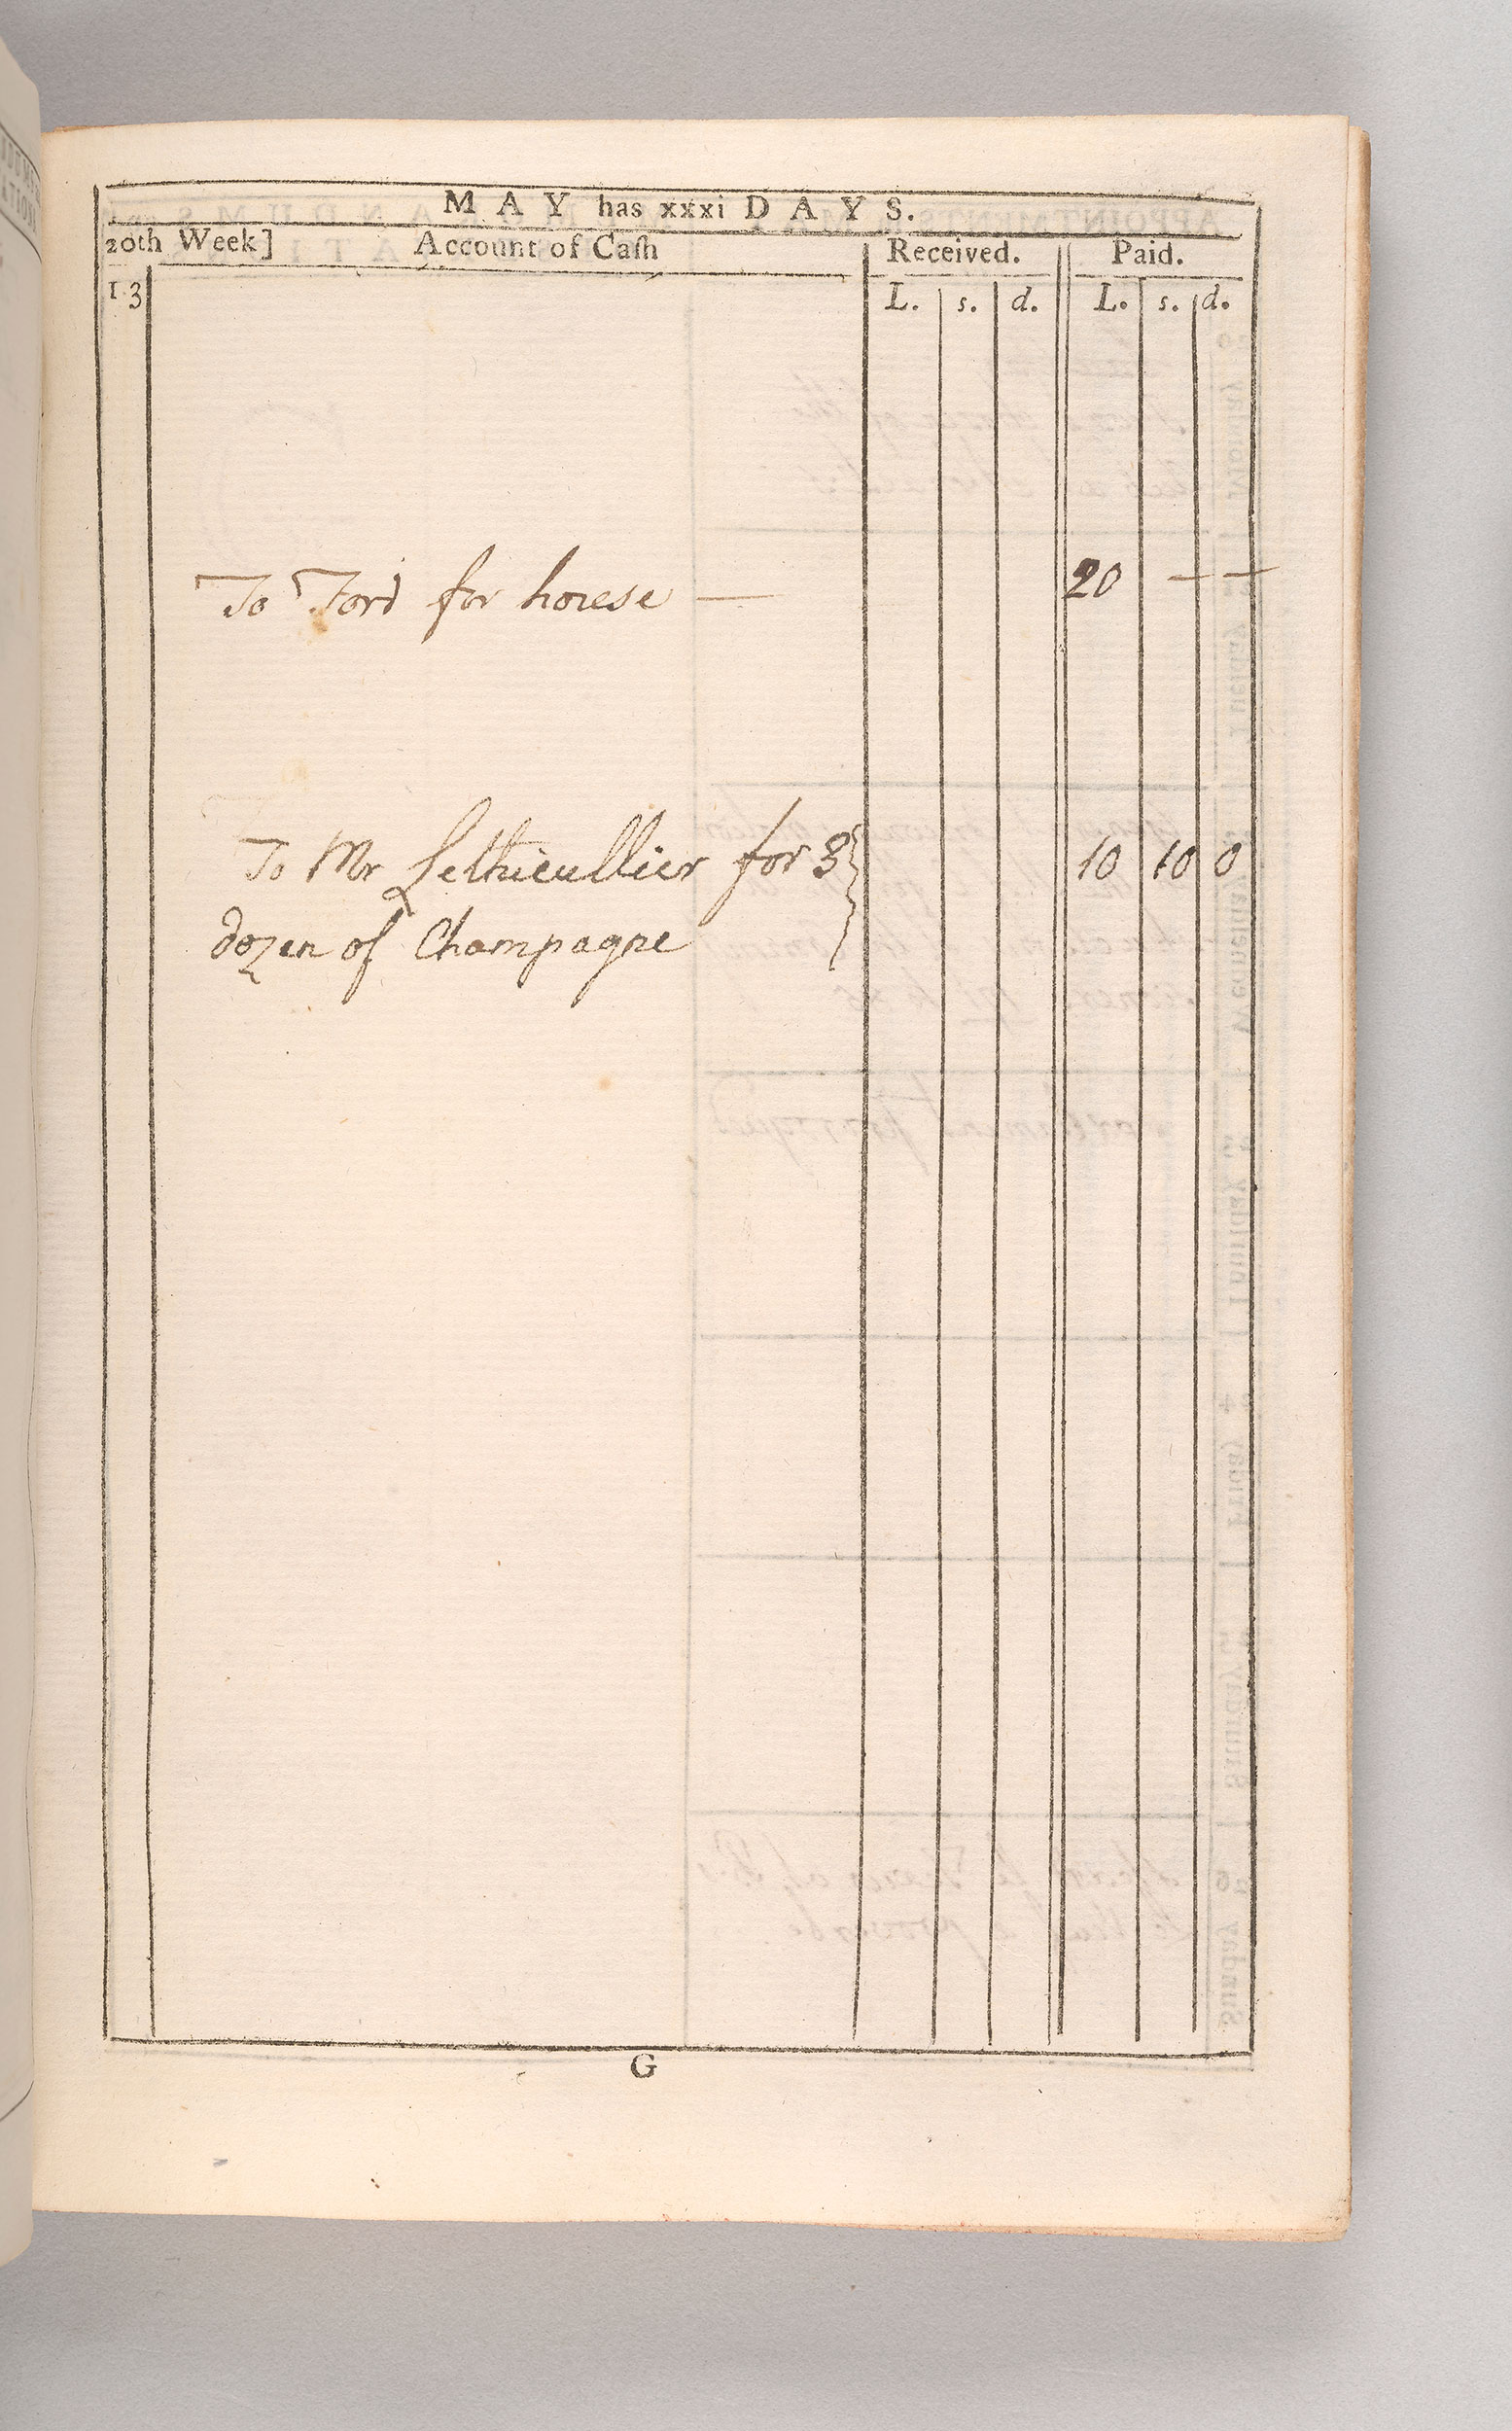 MAY has xxxi DAYS.
20th Week] Account of Caſh Received. Paid.
13 L. s. d. L. s. d.
To Ford for house — 20 — —
To Mr Lethieullier for 3 10 10 0
dozen of Champagne
G